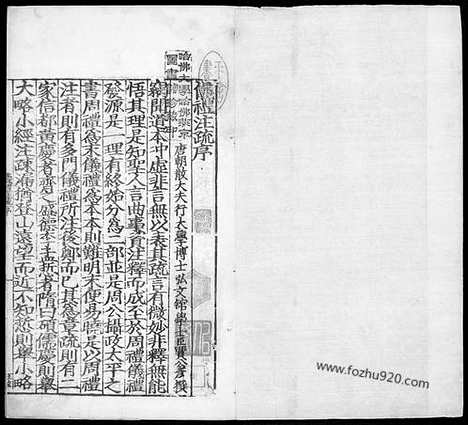 儀禮注疏序
唐朝散大夫行大學博士弘文館學士臣賈公彥撰
竊聞道本冲虛非言無以表其疏言有微妙非釋無能
悟其理是知聖人言曲事資注釋而成至於周禮儀禮
發源是一理有終始分為二部並是周公攝政太平之
書周禮為末儀禮為本本則難明末便易曉是以周禮
注者則有多門儀禮所注後鄭而已其為章疏則有二
家信都黃慶者齊之盛德李孟悊者隋曰碩儒慶則舉
大略小經注疎漏猶登山遠望而近不知悊則舉小略
www.fozhu920.com